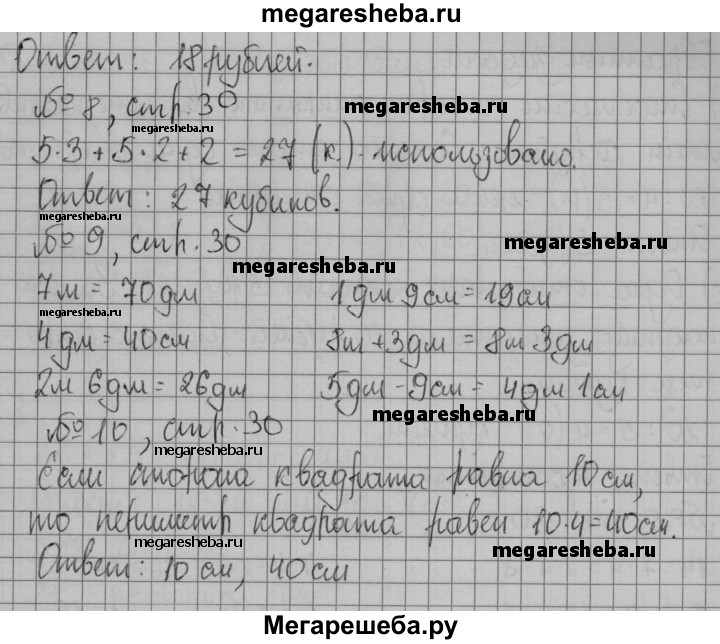 megaresheba.ru
Ответ: 18 рублей.
№ 8, стр. 30 megaresheba.ru
megaresheba.ru
5·3+5·2+2=27 (к.) использовано.
Ответ: 27 кубиков.
megaresheba.ru
№ 9, стр. 30 megaresheba.ru
megaresheba.ru
7м = 70дм 1дм 9см = 19см
megaresheba.ru
4дм = 40см 8м + 3дм = 8м 3дм
2м 6дм = 26дм 5дм - 9см = 4дм 1см
megaresheba.ru
№ 10, стр. 30
megaresheba.ru
Если сторона квадрата равна 10см,
то периметр квадрата равен 10·4=40см.
megaresheba.ru megaresheba.ru
Ответ: 10 см, 40 см
Мегарешеба.ру